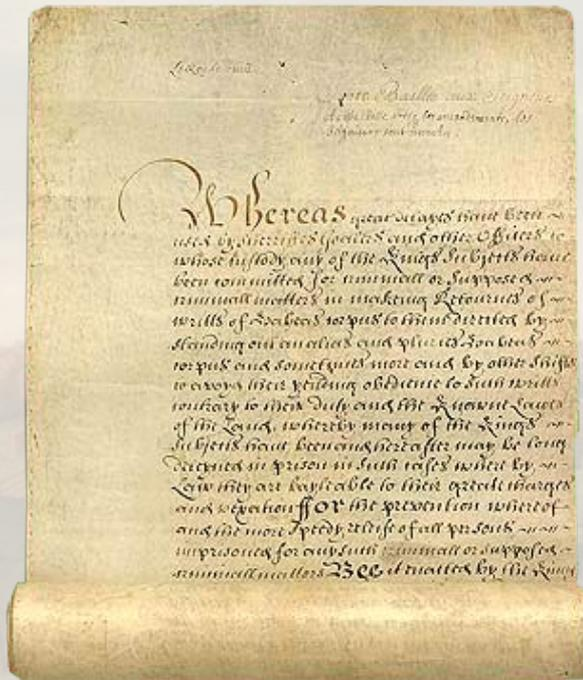 Baille aux Seigneurs
Whereas great delayes have been
used by Sherriffes Goalers and other Officers to
whose custody any of the Kings Subjects have
been committed for criminall or Supposed
criminall matters in makeing Returnes of
writts of Habeas corpus to them directed by
standing out an alias and pluries Habeas
corpus and sometymes more and by other shifts
to avoyd their yeilding obedience to such writts
contrary to their duty and the knowne Lawes
of the Land, whereby many of the Kings
Subjects have been and hereafter may be long
deteyned in prison in such cases where by
Law they are bayleable to their greate charges
and vexation ffor the prevention whereof
and the more speedy releife of all persons
imprisoned for any such criminall or supposed
criminall matters Bee it enacted by the Kings